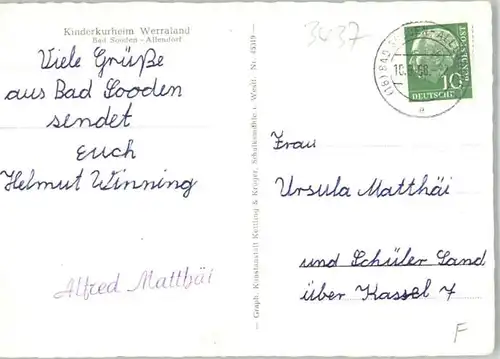 Kinderkurheim Werraland
Bad Sooden - Allendorf
Viele Grüße
aus Bad Sooden
sendet
euch
Helmut Winning
Alfred Matthäi
Graph. Kunstanstalt Kettling & Krüger, Schalksmühle i. Westf. Nr. 45319
3437
(16) BAD
10
DEUTSCHE
e
Frau
Ursula Matthäi
und Schüler Sand
über Kassel 7
F